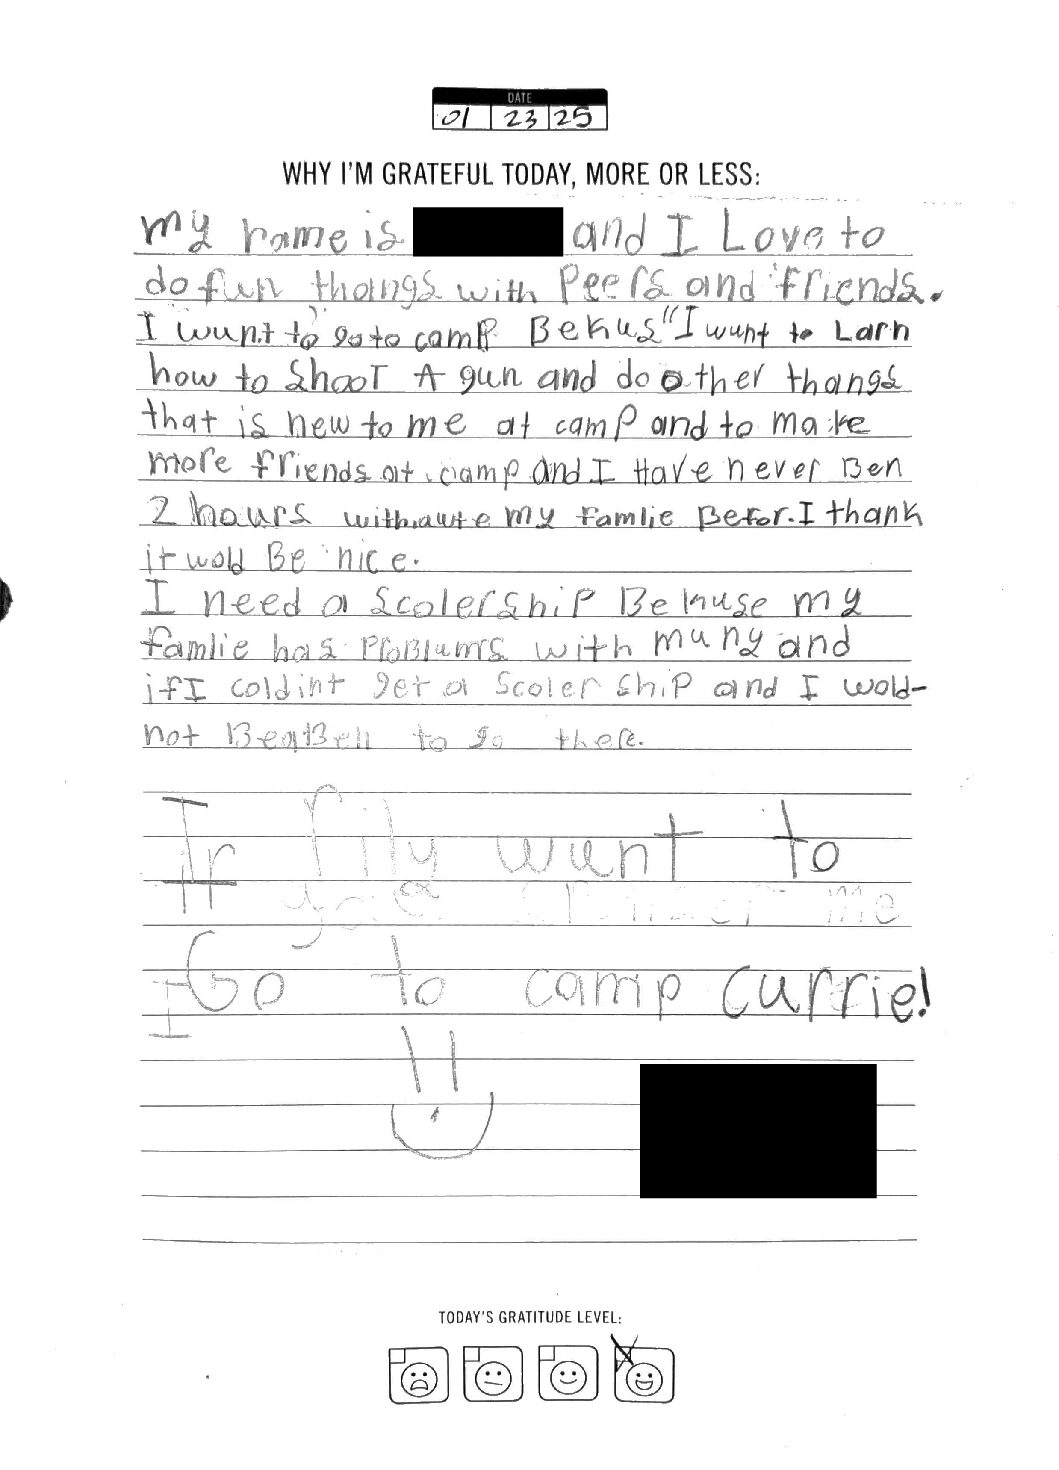 DATE
01 23 25
WHY I'M GRATEFUL TODAY, MORE OR LESS:
my name is and I Love to
do fun thangs with Peers and friends.
I wunt to go to camp Bekus "I wunt to Larn
how to ShooT A gun and do other thangs
that is new to me at camp and to make
more friends at camp and I Have never Ben
2 hours withaute my famlie Befor. I thank
it wold Be nice.
I need a ScolerShip Bekause my
famlie has ProBlums with muny and
if I coldint get a ScolerShip and I wold-
not Be to go there.
I rily want to
me
Go to camp currie!
TODAY'S GRATITUDE LEVEL: